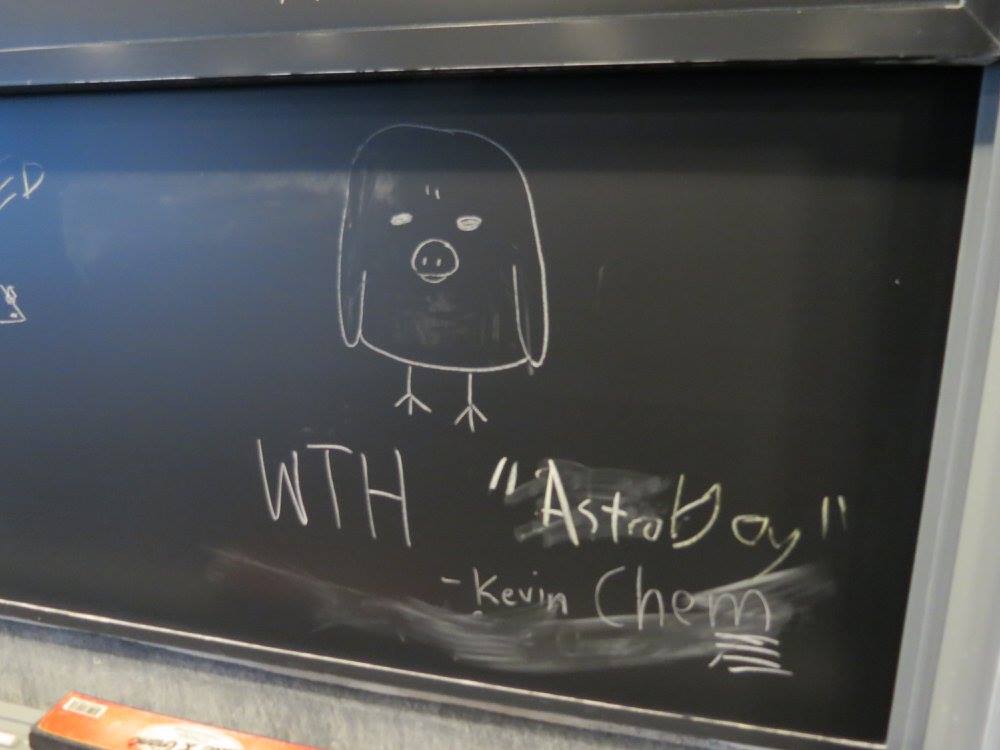 ED
WTH "Astroboy"
- Kevin Chem